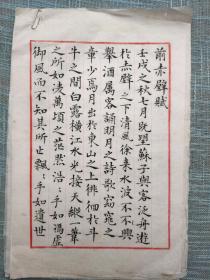 前赤壁賦
壬戌之秋七月既望蘇子與客泛舟遊
於赤壁之下清風徐來水波不興
舉酒屬客誦明月之詩歌窈窕之
章少焉月出於東山之上徘徊於斗
牛之間白露橫江水光接天縱一葦
之所如凌萬頃之茫然浩:乎如馮虛
御風而不知其所止飄:乎如遺世